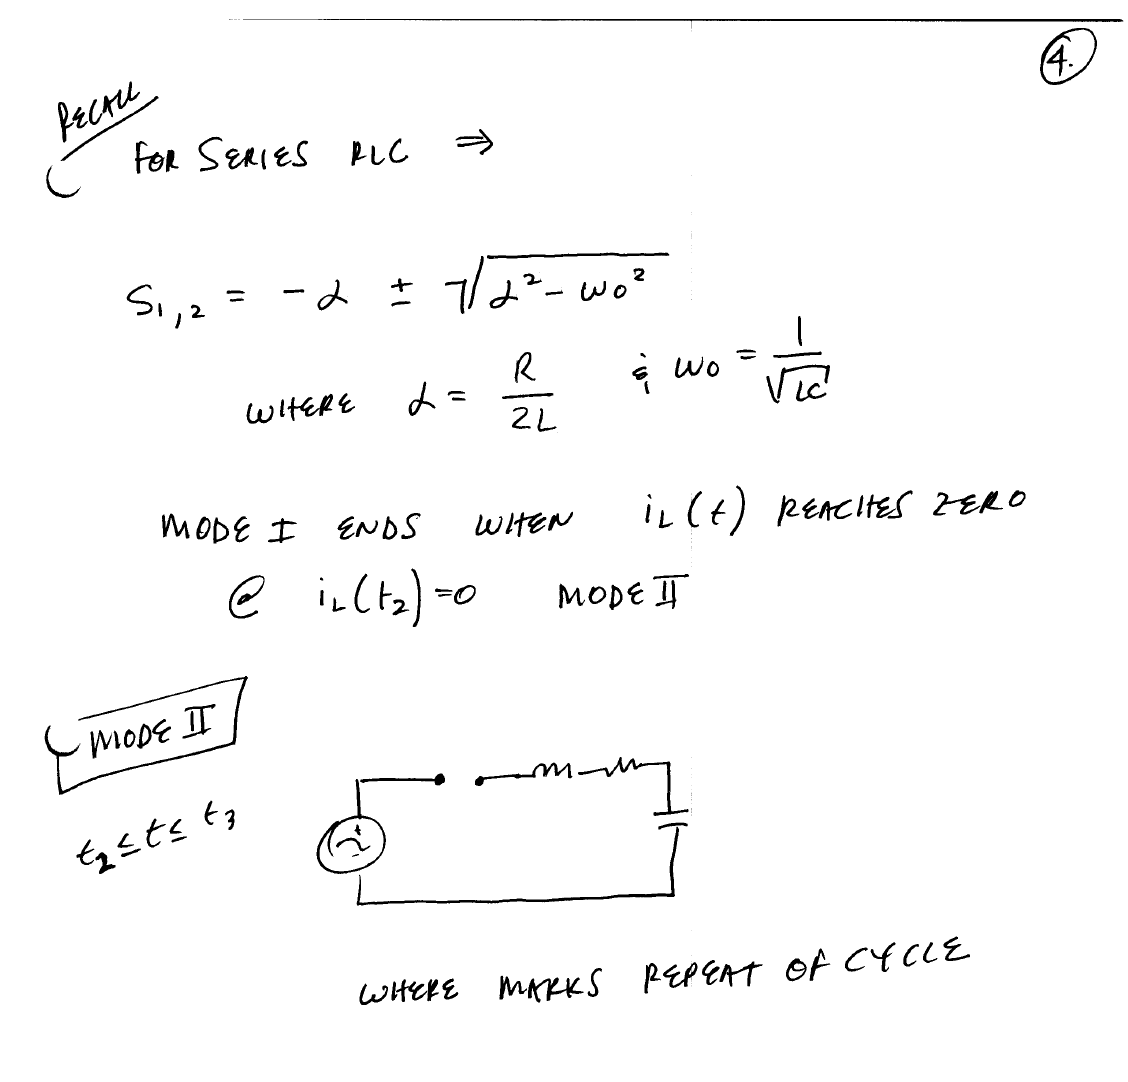 4.
RECALL
FOR SERIES RLC ⇒
S₁,₂ = -α ± √(α² - ω₀²)
WHERE α = R/2L & ω₀ = 1/√LC
MODE I ENDS WHEN i_L(t) REACHES ZERO
@ i_L(t₂)=0 MODE II
MODE II
t₂ ≤ t ≤ t₃
WHERE MARKS REPEAT OF CYCLE